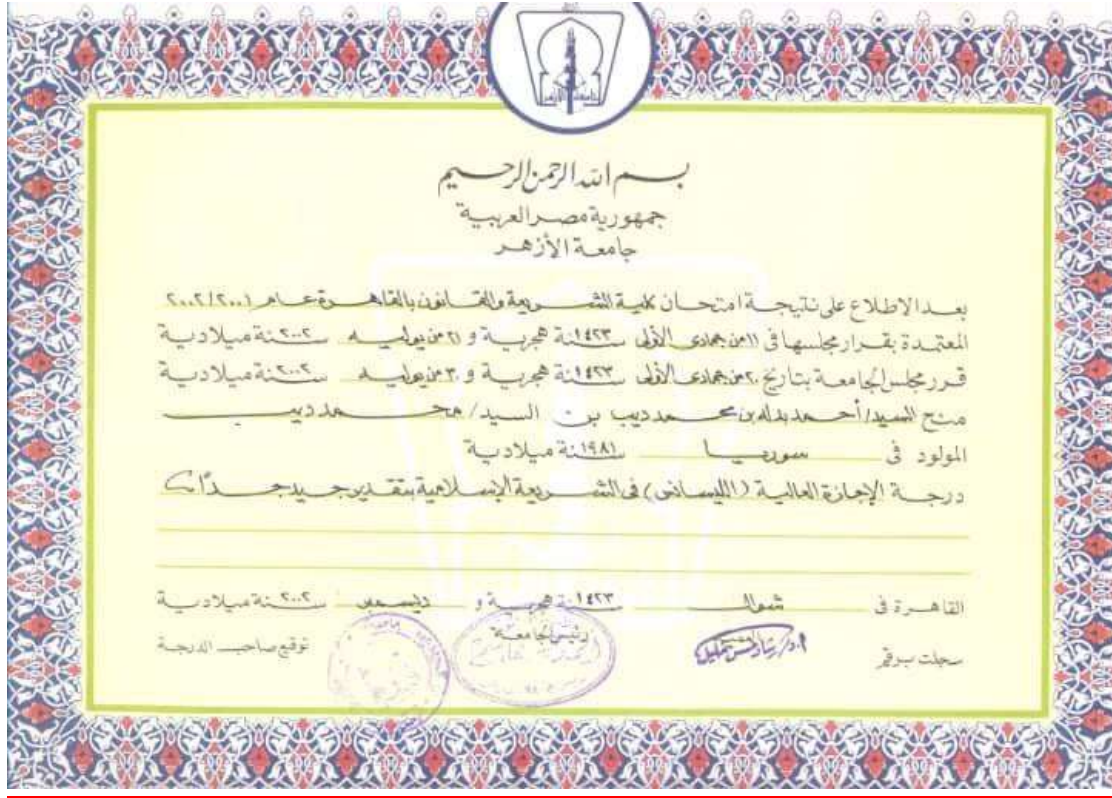 جامعة الأزهر
بسم الله الرحمن الرحيم
جمهورية مصر العربية
جامعة الأزهر
بعد الاطلاع على نتيجة امتحان كلية الشريعة والقانون بالقاهرة عام (٢٠٠٢/٢٠٠١
المعتمدة بقرار مجلسها في ١١ من جمادى الأولى سنة ١٤٢٣ هجرية و ٢١ من يوليه سنة ٢٠٠٢ ميلادية
قرر مجلس الجامعة بتاريخ ٢٠ من جمادى الأولى سنة ١٤٢٣ هجرية و ٣٠ من يوليه سنة ٢٠٠٢ ميلادية
منح السيد/ أحمد بدله بن محمد ديب بن السيد/ محمد ديب
المولود في سوريا سنة ١٩٨١ ميلادية
درجة الإجازة العالية (الليسانس) في الشريعة الإسلامية بتقدير جيد جداً
القاهرة في شوال سنة ١٤٢٣ هجرية و ديسمبر سنة ٢٠٠٢ ميلادية
سجلت برقم رئيس الجامعة توقيع صاحب الدرجة